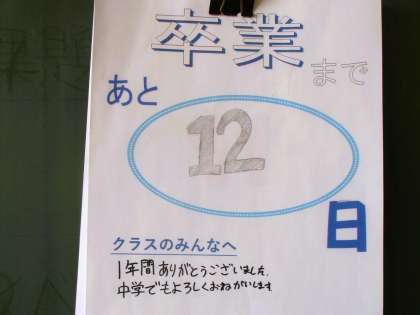 卒業まで
あと
12
日
クラスのみんなへ
1年間ありがとうございました。
中学でもよろしくおねがいします。